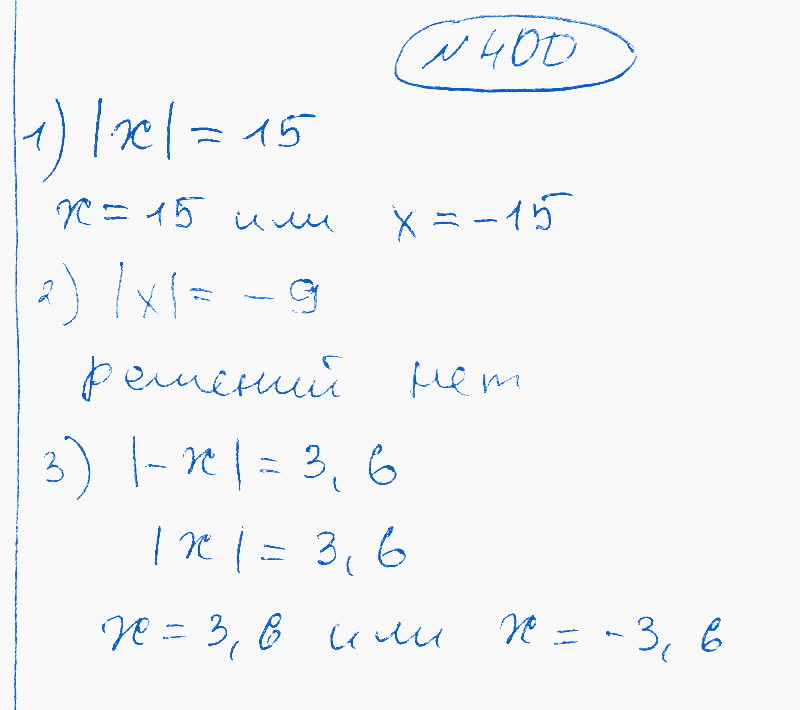 N 400
1) |x| = 15
x = 15 или x = -15
2) |x| = - 9
решений нет
3) |-x| = 3, 6
|x| = 3, 6
x = 3, 6 или x = -3, 6